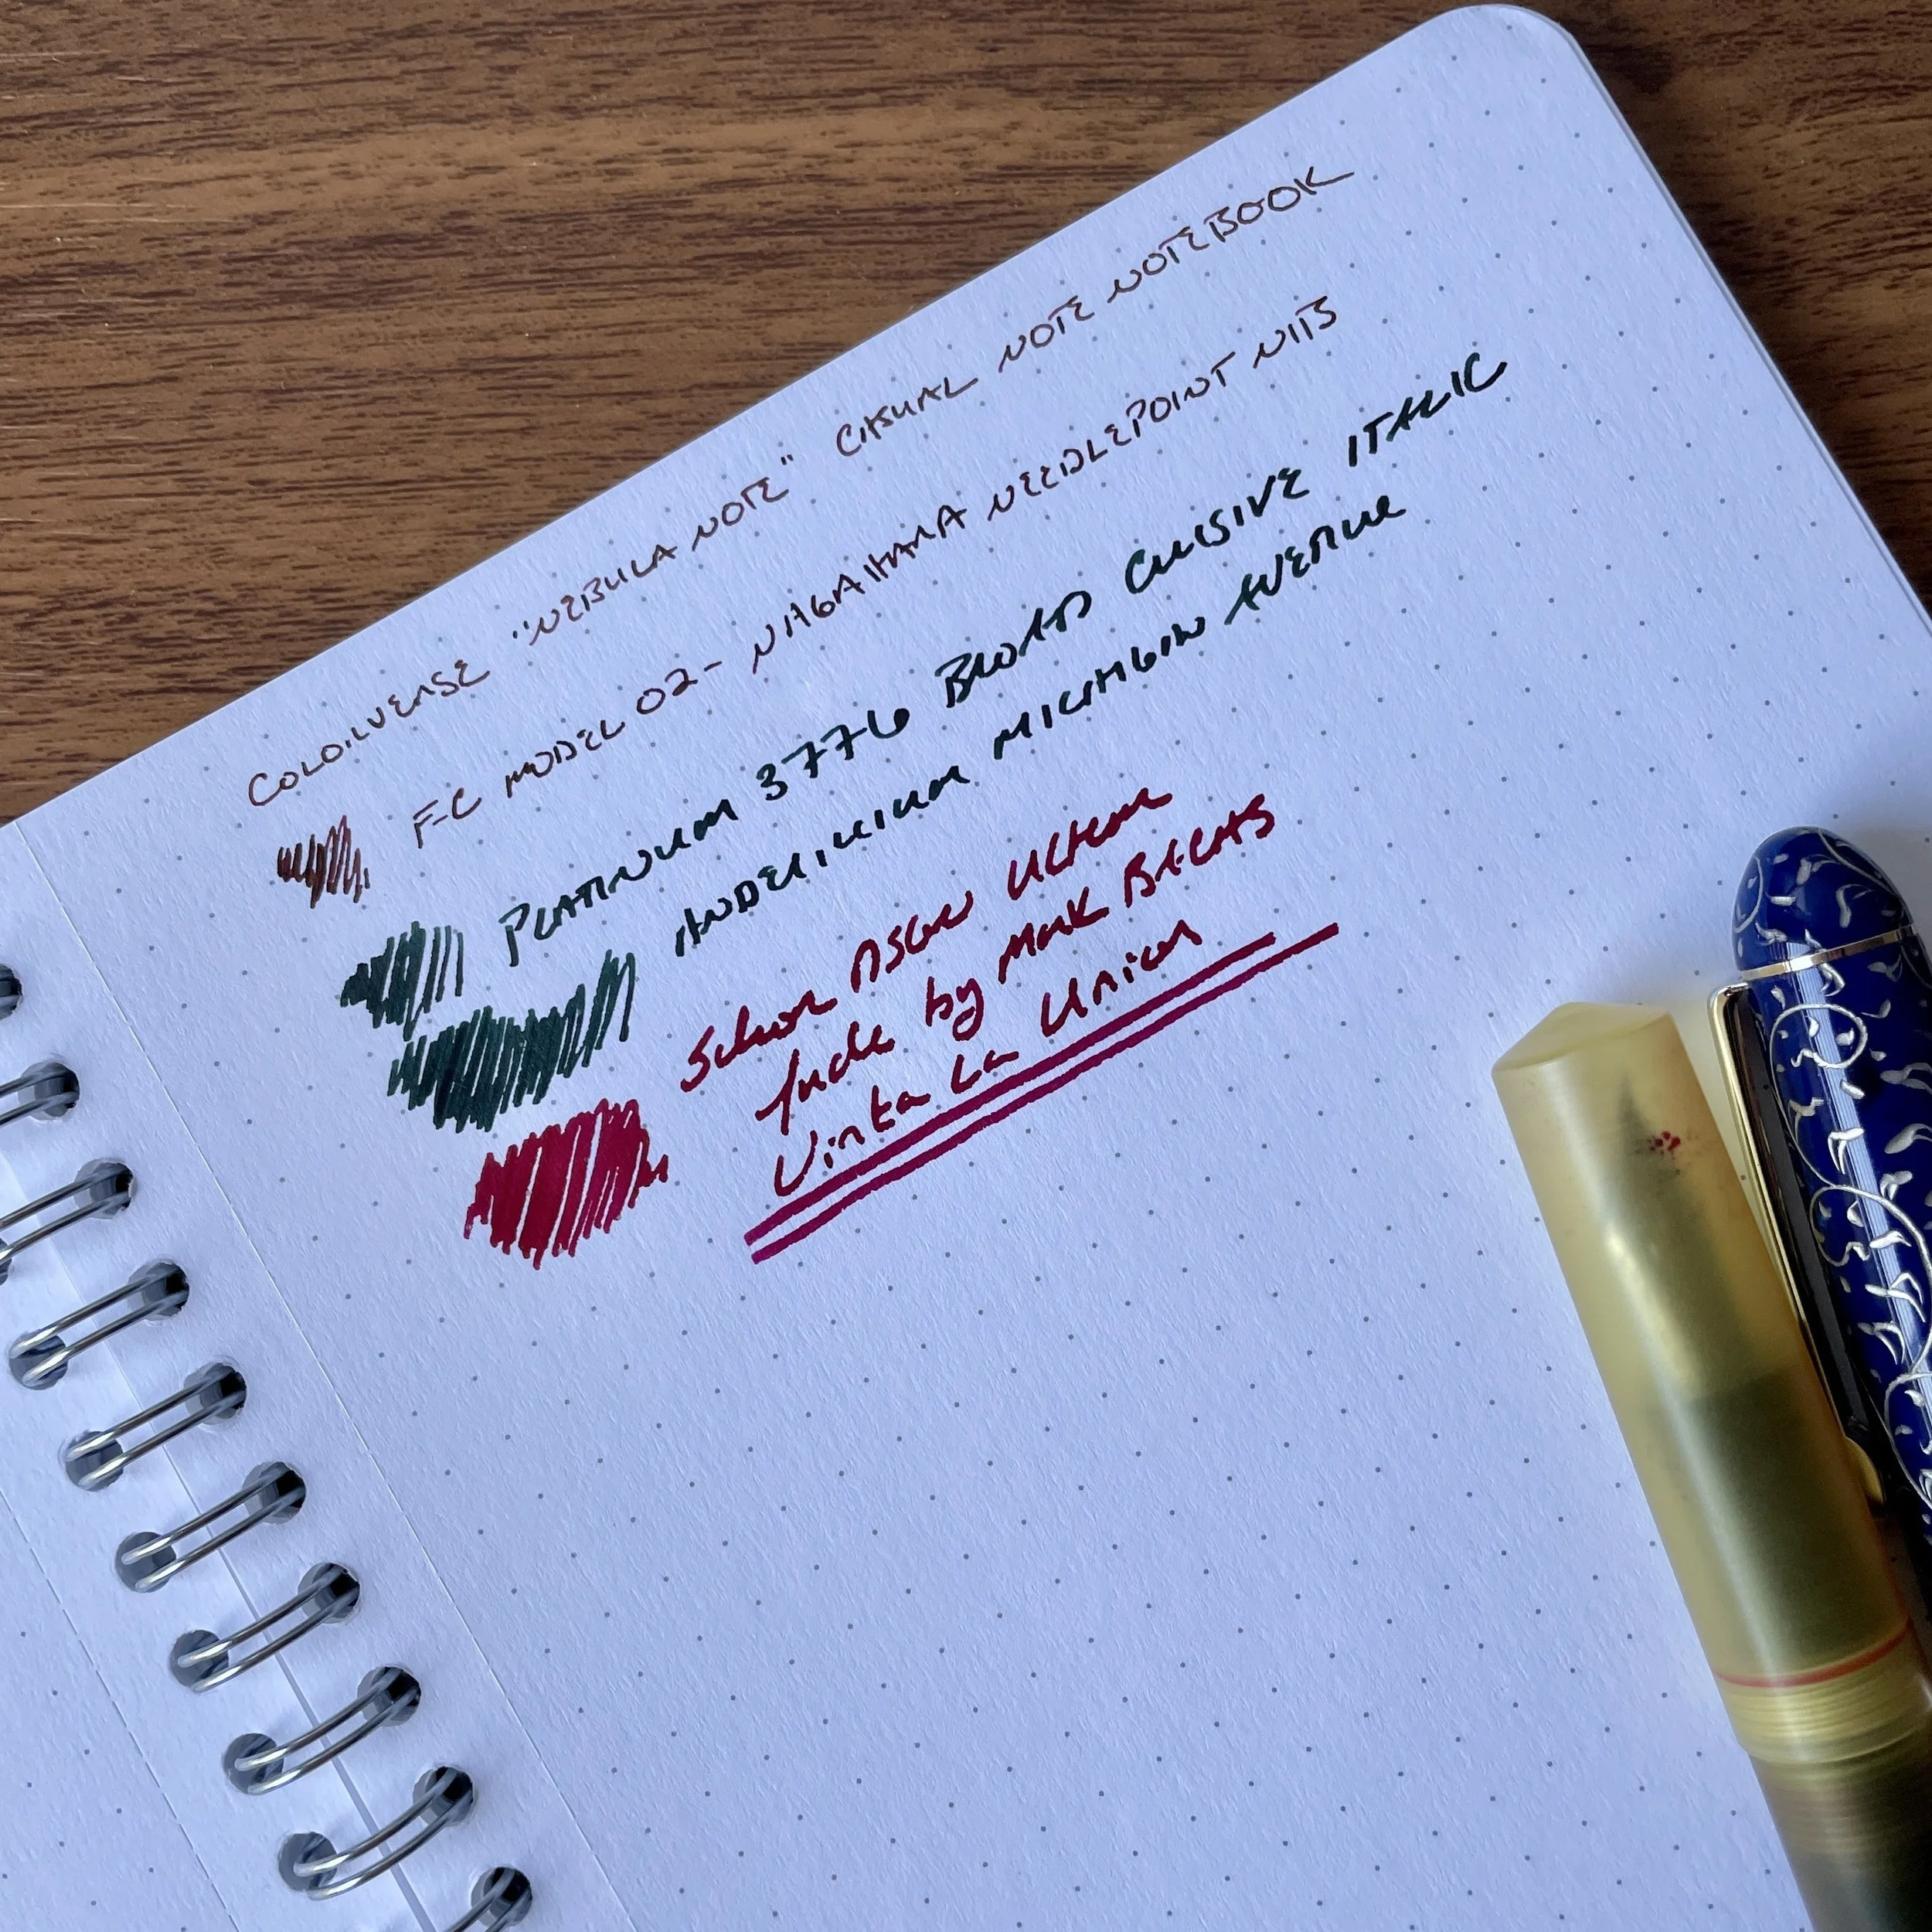 COLORVERSE "NEBULA NOTE" CASUAL NOTE NOTEBOOK
F-C MODEL 02- NAGAHARA NEEDLEPOINT NIB
PLATINUM 3776 BROAD CURSIVE ITALIC
ANDERILLIUM MICHIGAN AVENUE
Schon DSGN Ultem
fude by Mark BACAS
Vinta La Union